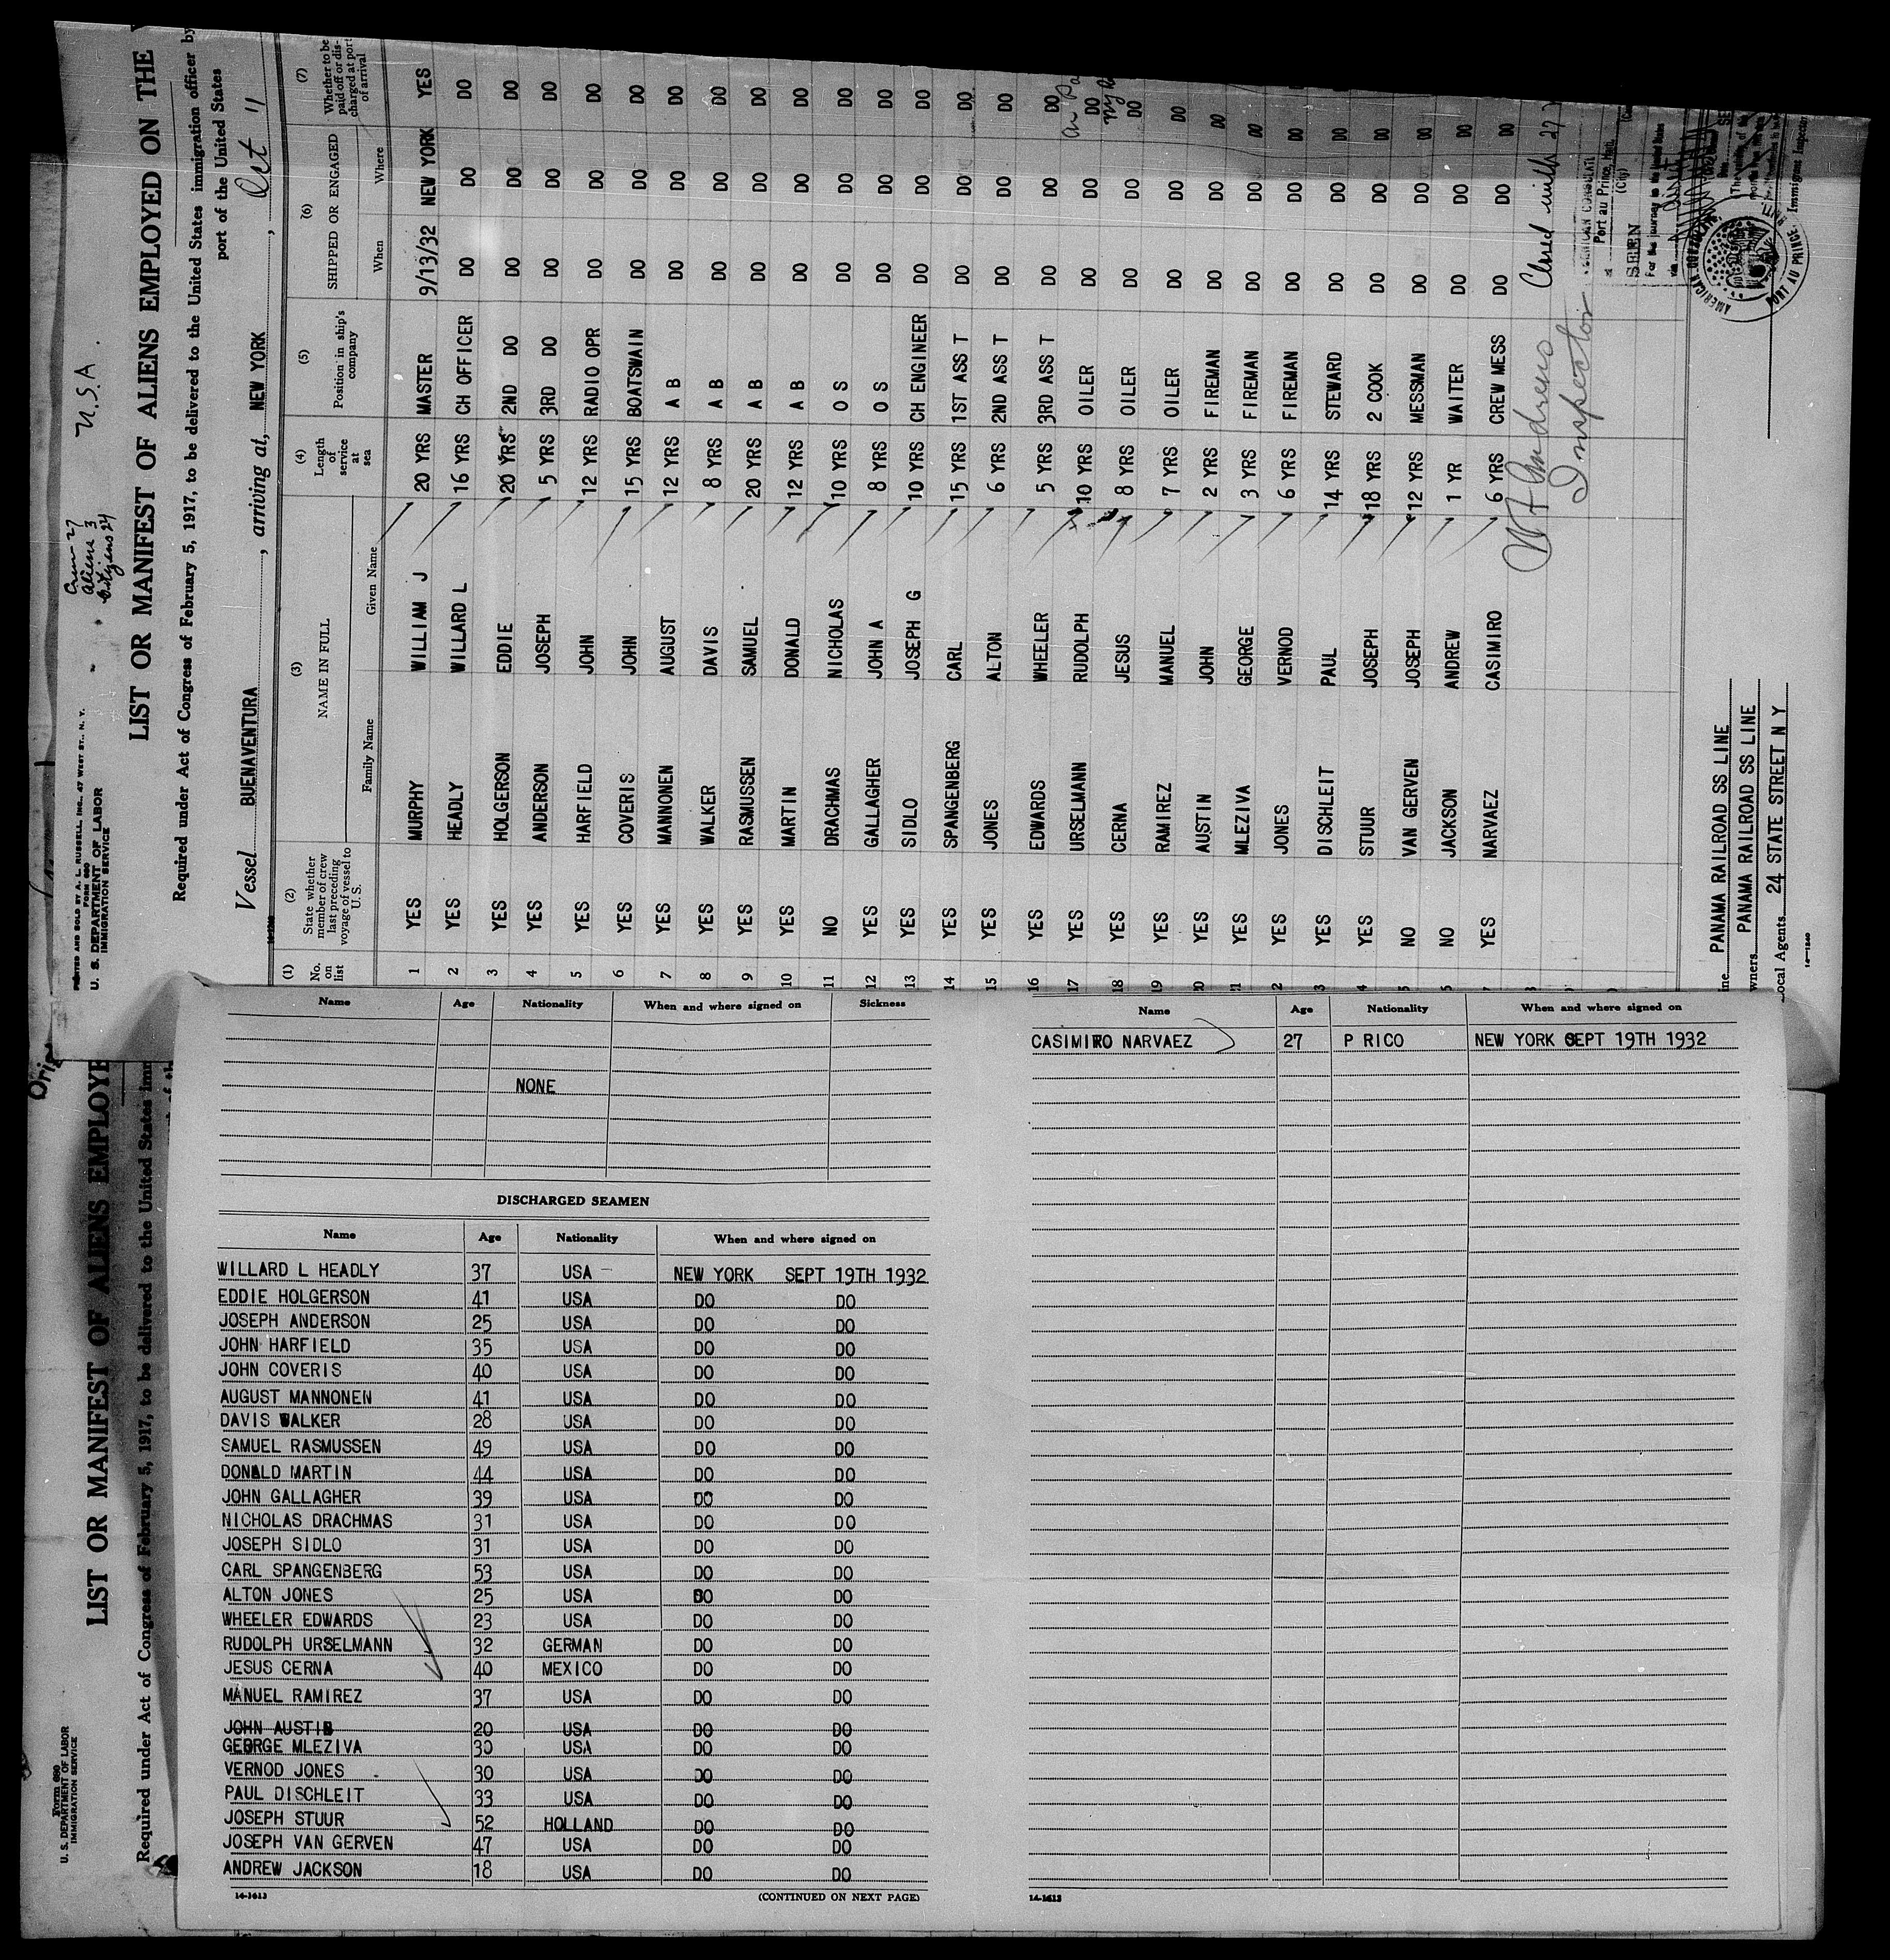 U.S.A.
Crew 27
Aliens 3
Citizens 24
PRINTED AND SOLD BY A. L. RUSSELL, INC., 47 WEST ST., N. Y.
FORM 680
U. S. DEPARTMENT OF LABOR
IMMIGRATION SERVICE
LIST OR MANIFEST OF ALIENS EMPLOYED ON THE
Required under Act of Congress of February 5, 1917, to be delivered to the United States immigration officer by
port of the United States
Vessel BUENAVENTURA, arriving at, NEW YORK, Oct 11
(1) No. on list (2) State whether member of crew last preceding voyage of vessel to U. S. (3) NAME IN FULL Family Name Given Name (4) Length of service at sea (5) Position in ship's company (6) SHIPPED OR ENGAGED When Where (7) Whether to be paid off or discharged at port of arrival
1 YES MURPHY WILLIAM J 20 YRS MASTER 9/13/32 NEW YORK YES
2 YES HEADLY WILLARD L 16 YRS CH OFFICER DO DO DO
3 YES HOLGERSON EDDIE 20 YRS 2ND DO DO DO DO
4 YES ANDERSON JOSEPH 5 YRS 3RD DO DO DO DO
5 YES HARFIELD JOHN 12 YRS RADIO OPR DO DO DO
6 YES COVERIS JOHN 15 YRS BOATSWAIN DO DO DO
7 YES MANNONEN AUGUST 12 YRS A B DO DO DO
8 YES WALKER DAVIS 8 YRS A B DO DO DO
9 YES RASMUSSEN SAMUEL 20 YRS A B DO DO DO
10 YES MARTIN DONALD 12 YRS A B DO DO DO
11 NO DRACHMAS NICHOLAS 10 YRS O S DO DO DO
12 YES GALLAGHER JOHN A 8 YRS O S DO DO DO
13 YES SIDLO JOSEPH G 10 YRS CH ENGINEER DO DO DO
14 YES SPANGENBERG CARL 15 YRS 1ST ASS T DO DO DO
15 YES JONES ALTON 6 YRS 2ND ASS T DO DO DO
16 YES EDWARDS WHEELER 5 YRS 3RD ASS T DO DO DO
17 YES URSELMANN RUDOLPH 10 YRS OILER DO DO DO
18 YES CERNA JESUS 8 YRS OILER DO DO DO
19 YES RAMIREZ MANUEL 7 YRS OILER DO DO DO
20 YES AUSTIN JOHN 2 YRS FIREMAN DO DO DO
21 YES MLEZIVA GEORGE 3 YRS FIREMAN DO DO DO
2 YES JONES VERNOD 6 YRS FIREMAN DO DO DO
3 YES DISCHLEIT PAUL 14 YRS STEWARD DO DO DO
4 YES STUUR JOSEPH 18 YRS 2 COOK DO DO DO
5 NO VAN GERVEN JOSEPH 12 YRS MESSMAN DO DO DO
6 NO JACKSON ANDREW 1 YR WAITER DO DO DO
YES NARVAEZ CASIMIRO 6 YRS CREW MESS DO DO DO
Closed with 27
Andrews
Inspector
AMERICAN CONSULATE
at Port au Prince, Haiti
(City)
SEEN
For the journey to the United States
via
AMERICAN
PORT AU PRINCE
Immigrant Inspector
ine PANAMA RAILROAD SS LINE
wners PANAMA RAILROAD SS LINE
Local Agents 24 STATE STREET N Y
14-1240
Form 680
U. S. DEPARTMENT OF LABOR
IMMIGRATION SERVICE
LIST OR MANIFEST OF ALIENS EMPLOYE
Required under Act of Congress of February 5, 1917, to be delivered to the United States imm
Name Age Nationality When and where signed on Sickness
NONE
DISCHARGED SEAMEN
Name Age Nationality When and where signed on
WILLARD L HEADLY 37 USA NEW YORK SEPT 19TH 1932
EDDIE HOLGERSON 41 USA DO DO
JOSEPH ANDERSON 25 USA DO DO
JOHN HARFIELD 35 USA DO DO
JOHN COVERIS 40 USA DO DO
AUGUST MANNONEN 41 USA DO DO
DAVIS WALKER 28 USA DO DO
SAMUEL RASMUSSEN 49 USA DO DO
DONALD MARTIN 44 USA DO DO
JOHN GALLAGHER 39 USA DO DO
NICHOLAS DRACHMAS 31 USA DO DO
JOSEPH SIDLO 31 USA DO DO
CARL SPANGENBERG 53 USA DO DO
ALTON JONES 25 USA DO DO
WHEELER EDWARDS 23 USA DO DO
RUDOLPH URSELMANN 32 GERMAN DO DO
JESUS CERNA 40 MEXICO DO DO
MANUEL RAMIREZ 37 USA DO DO
JOHN AUSTIN 20 USA DO DO
GEORGE MLEZIVA 30 USA DO DO
VERNOD JONES 30 USA DO DO
PAUL DISCHLEIT 33 USA DO DO
JOSEPH STUUR 52 HOLLAND DO DO
JOSEPH VAN GERVEN 47 USA DO DO
ANDREW JACKSON 18 USA DO DO
14-1613
(CONTINUED ON NEXT PAGE)
Name Age Nationality When and where signed on
CASIMIRO NARVAEZ 27 P RICO NEW YORK SEPT 19TH 1932
14-1613